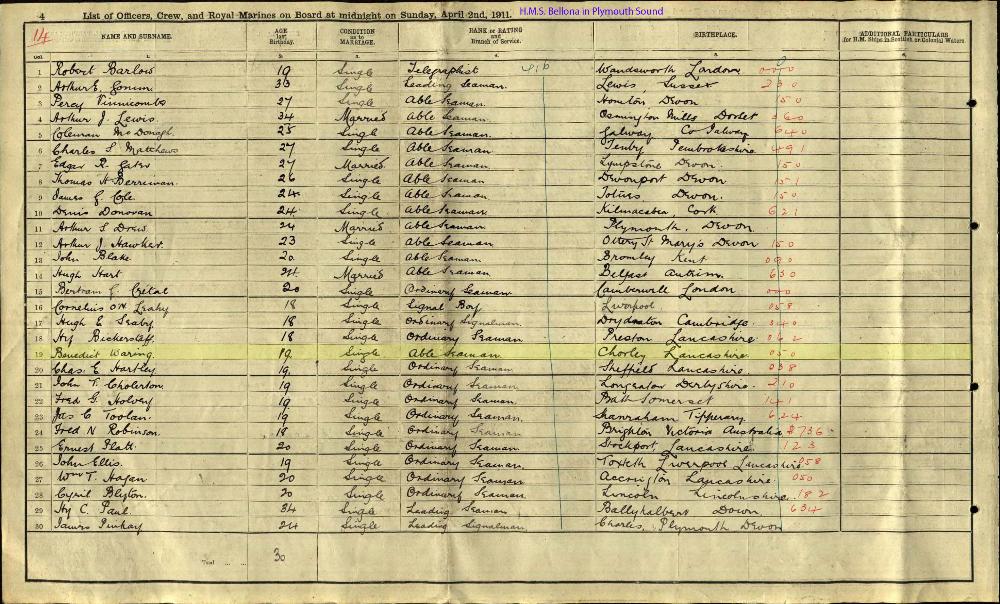 4 List of Officers, Crew, and Royal Marines on Board at midnight on Sunday, April 2nd, 1911. H.M.S. Bellona in Plymouth Sound
14
NAME AND SURNAME. AGE last Birthday. CONDITION as to MARRIAGE. RANK or RATING and Branch of Service. BIRTHPLACE. ADDITIONAL PARTICULARS (for H.M. Ships in Scottish or Colonial Waters.
1 Robert Barlow 19 Single Telegraphist Wandsworth London
2 Arthur E. 36 Single Leading Seaman. Lewis, Sussex 230
3 Percy Vinnicombe 27 Single Able Seaman. Honiton, Devon 150
4 Arthur J. Lewis. 34 Married Able Seaman. Osmington Mills Dorset 360
5 Coleman McDonagh. 25 Single Able Seaman. Galway Co Galway 640
6 Charles S Matthews 27 Single Able Seaman Tenby Pembrokeshire 491
7 Edgar R. 27 Married Able Seaman. Lympstone Devon. 150
8 Thomas H Berriman. 26 Single Able Seaman Devonport Devon 151
9 James G. Cole. 24 Single Able Seaman. Totnes Devon. 150
10 Denis Donovan 24 Single Able Seaman. Kilmacabea, Cork 621
11 Arthur S Drew. 24 Married Able Seaman Plymouth, Devon.
12 Arthur J Hawker. 23 Single Able Seaman Ottery St Mary's Devon 150
13 John Blake 20 Single Able Seaman. Bromley Kent 090
14 Hugh Hart 24 Married Able Seaman Belfast Antrim. 630
15 Bertram 20 Single Ordinary Seaman Camberwell London
16 Cornelius Leahy 18 Single Signal Boy Liverpool 058
17 Hugh E 18 Single Ordinary Signalman. Cambridge 340
18 Hy Bickerstaff. 18 Single Ordinary Seaman Preston Lancashire
19 Benedict Waring. 19 Single Able Seaman Chorley Lancashire. 050
20 Chas. E Hartley 19 Single Ordinary Seaman Sheffield Lancashire. 038
21 John T. Cholerton. 19 Single Ordinary Seaman. Longeaton Derbyshire. 210
22 Fred G. Holvey 19 Single Ordinary Seaman. Bath Somerset 141
23 Jas C Toolan. 19 Single Ordinary Seaman. Shanraham Tipperary 624
24 Fred N Robinson. 18 Single Ordinary Seaman Brighton Victoria Australia 8736
25 Ernest Platt 20 Single Ordinary Seaman. Stockport, Lancashire 123
26 John Ellis. 19 Single Ordinary Seaman. Toxteth Liverpool Lancashire 058
27 Wm T. Hagan 20 Single Ordinary Seaman. Accrington Lancashire 050
28 Cyril Blyton. 20 Single Ordinary Seaman Lincoln Lincolnshire. 182
29 Hy C. Paul. 34 Single Leading Seaman Ballyhalbert Down. 634
30 James 24 Single Leading Signalman Charles, Plymouth Devon
Total ... ... 30